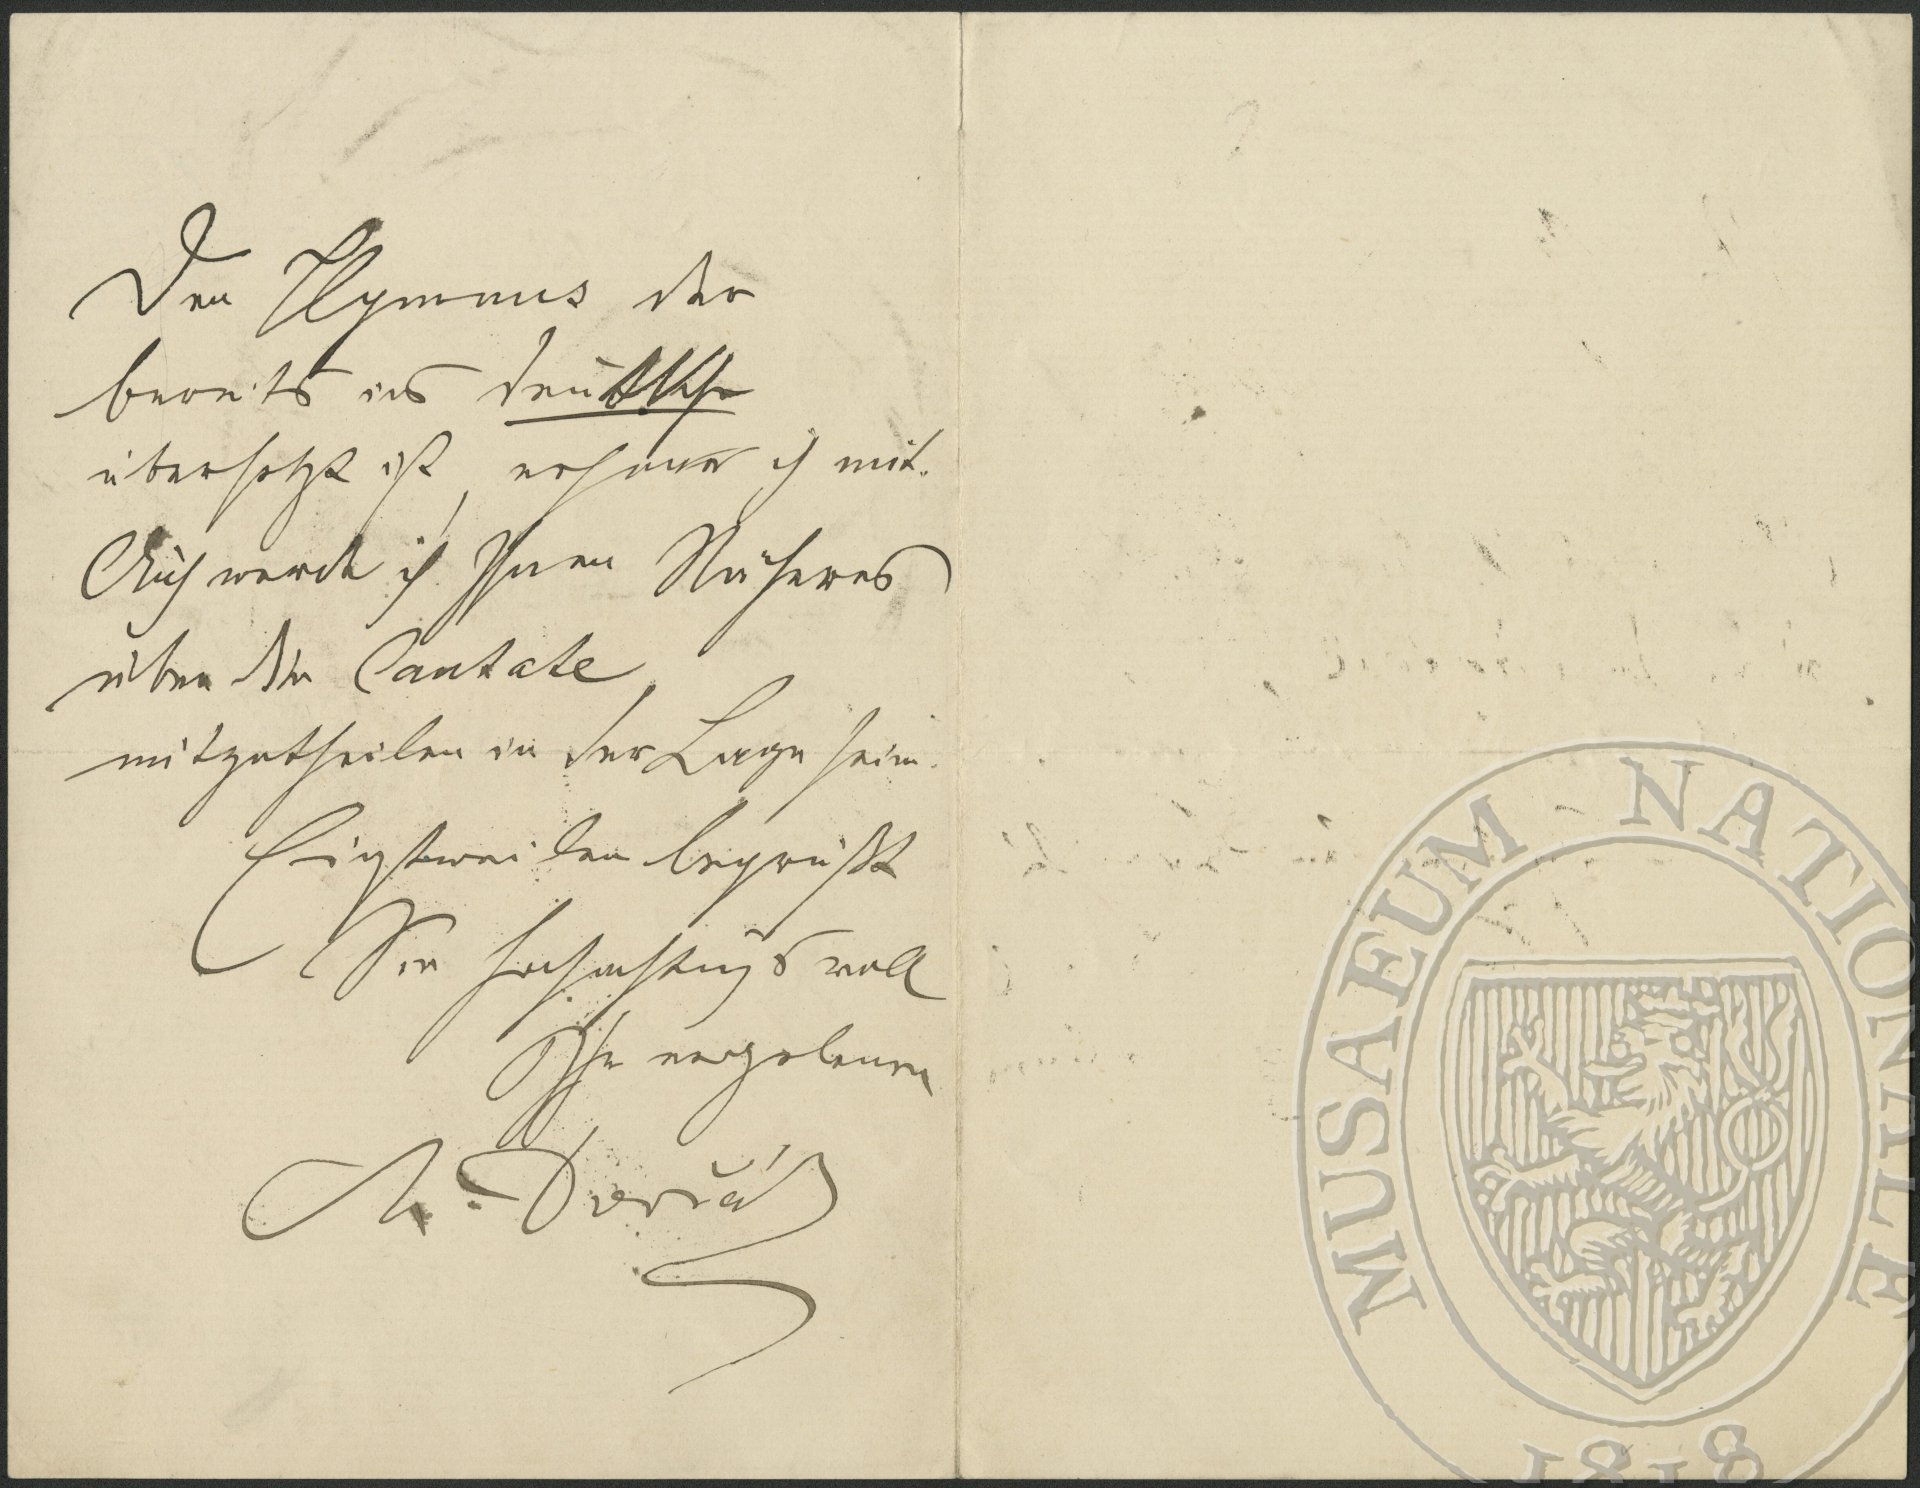 Den Hymnus der
bereits ins deutsche
übersetzt ist, ersuche ich mit.
Auch werde ich Ihnen Näheres
über die Cantate
mitzutheilen in der Lage sein.
Einstweilen begrüßt
Sie hochachtungsvoll
Ihr ergebener
A. Dvořák
MUSAEUM NATIONALE
1818